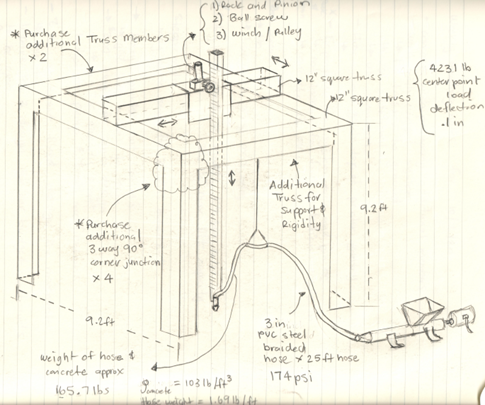 1) Rack and Pinion
2) Ball screw
3) winch / Pulley
* Purchase
additional Truss Members
x 2
12" square truss
12" square truss
4231 lb
center point
load
deflection
.1 in
* Purchase
additional
3 way 90°
corner junction
x 4
Additional
Truss for
Support &
Rigidity
9.2ft
9.2ft
3 in
PVC steel
braided
hose x 25ft hose
174 psi
weight of hose &
concrete approx
165.7 lbs
ρconcrete = 103 lb/ft³
Hose weight = 1.69 lb/ft